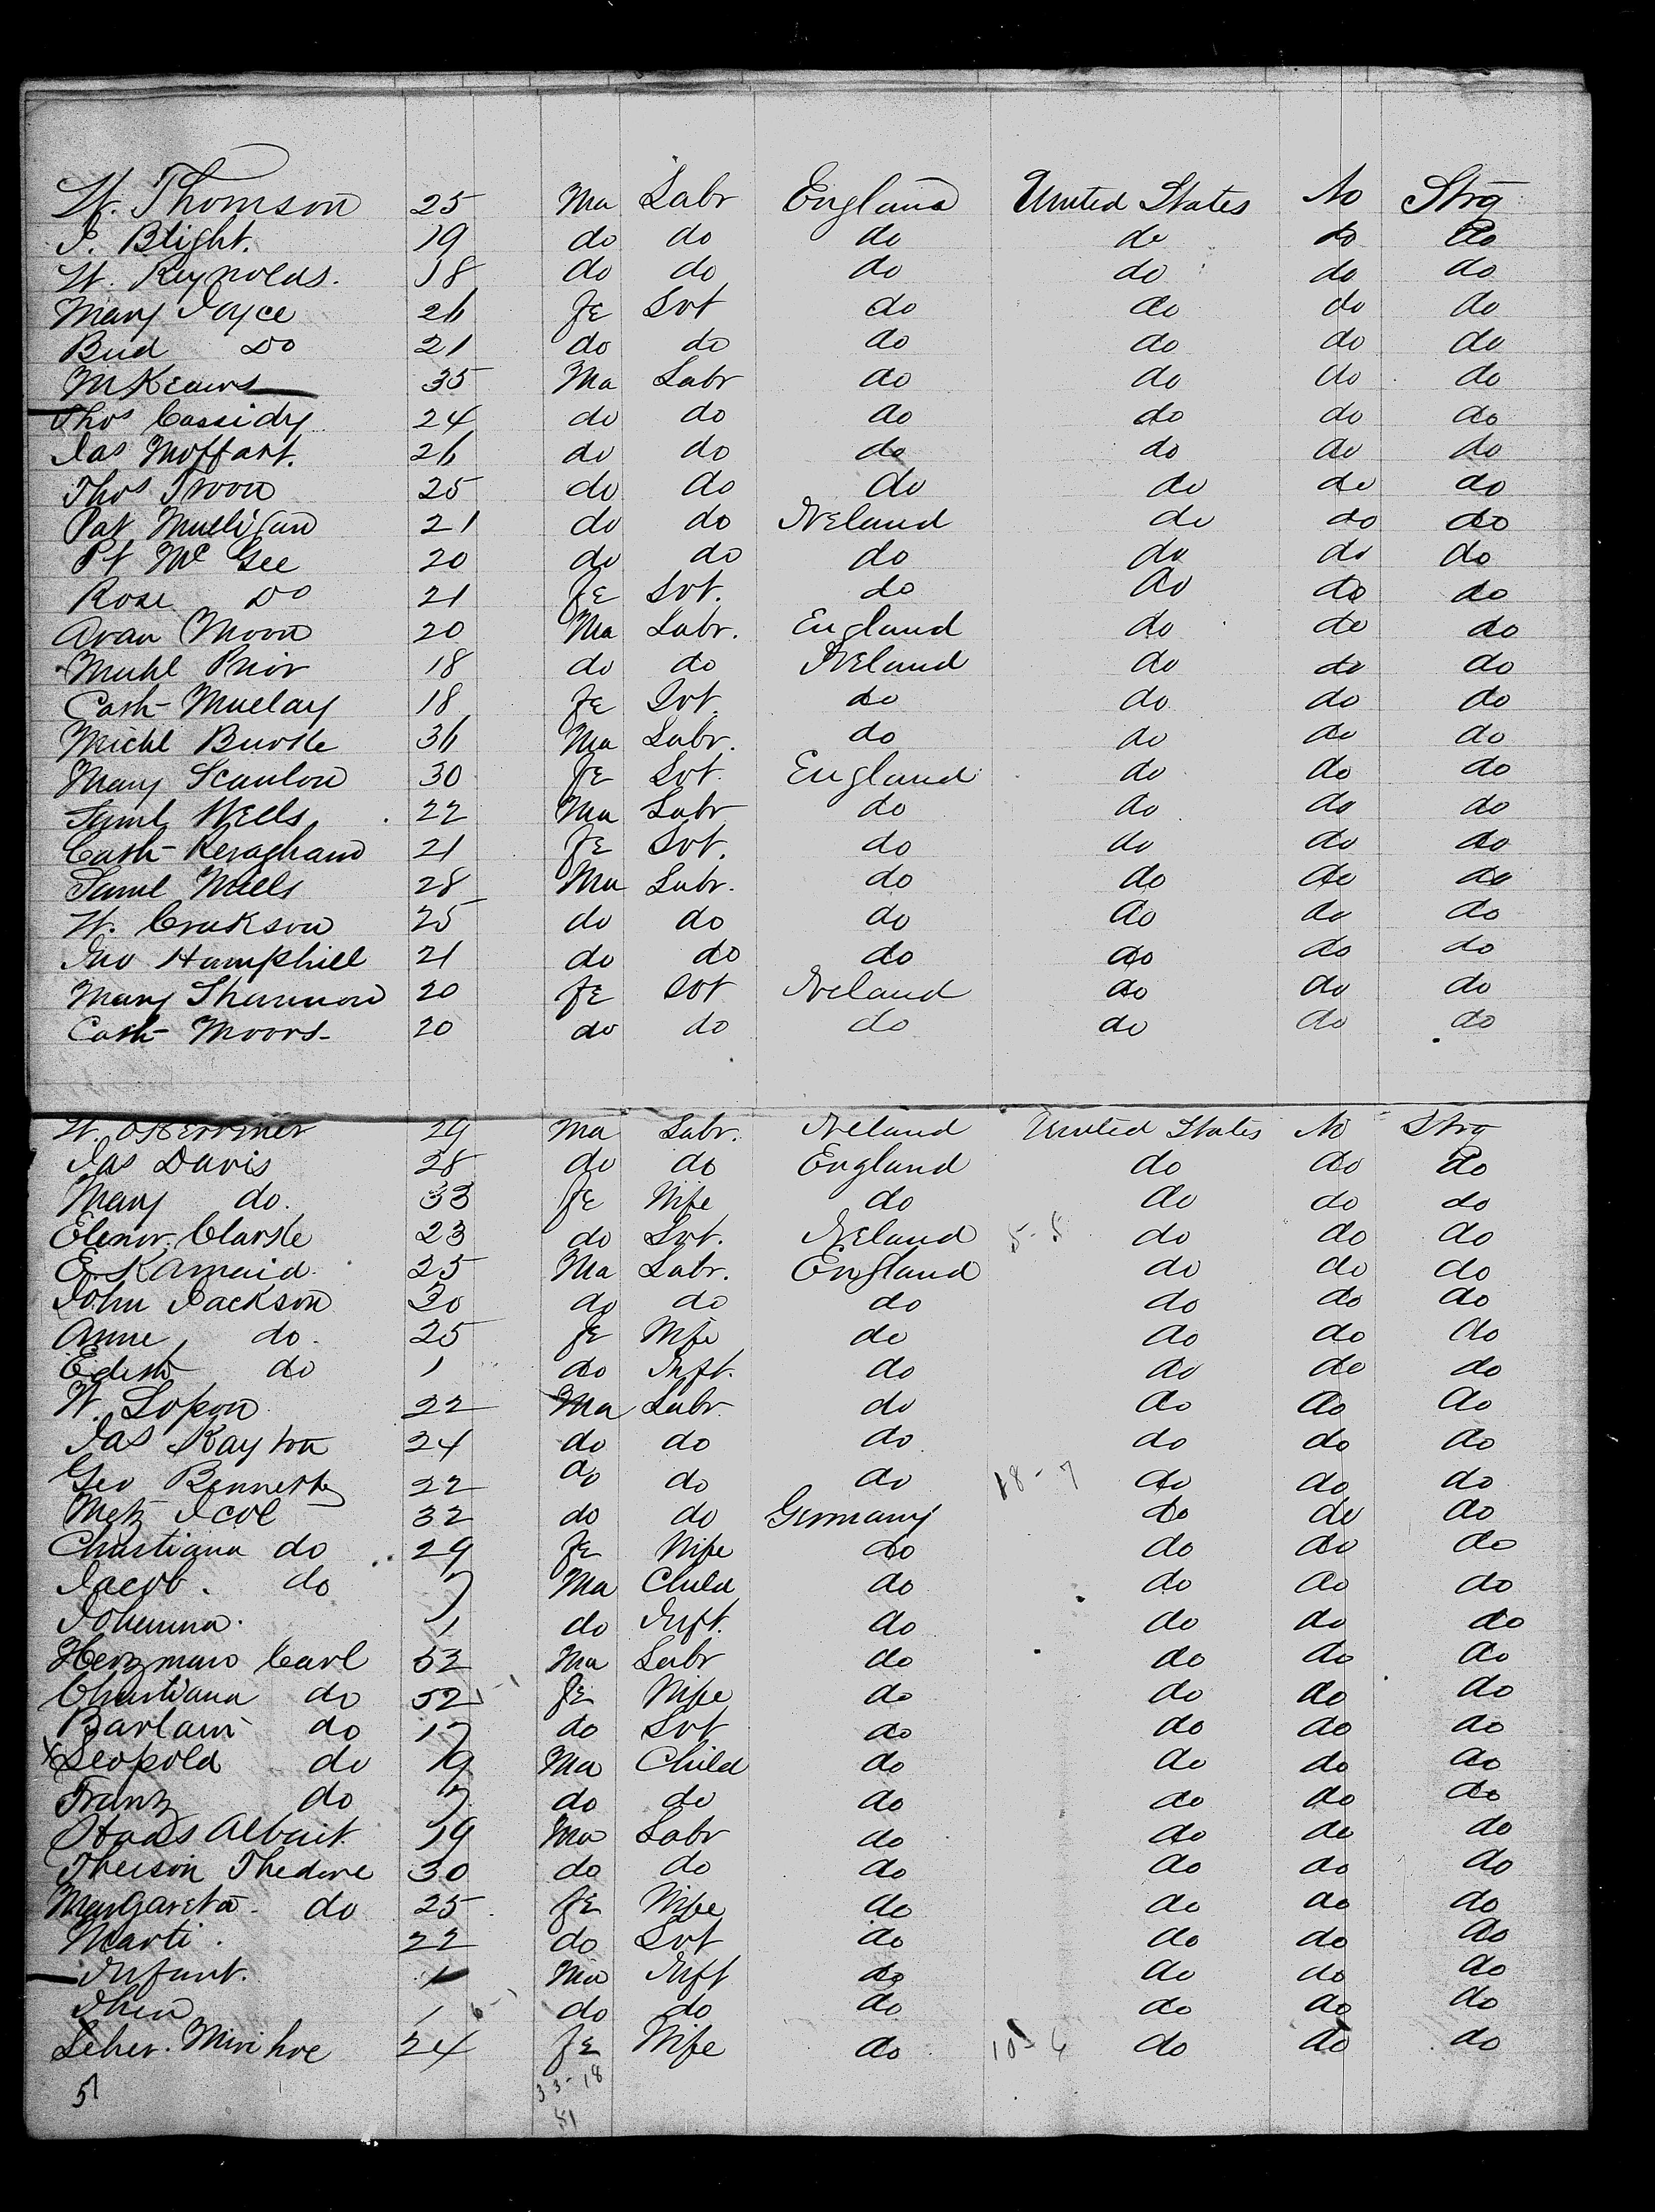 W. Thomson 25 Ma Labr England United States No Strg
J. Blight. 19 do do do do do do
W. Reynolds. 18 do do do do do do
Mary Joyce 26 fe Svt do do do do
Brid Do 21 do do do do do do
M Kearns 35 Ma Labr do do do do
Thos Cassidy 24 do do do do do do
Jas Moffart. 26 do do do do do do
Thos 25 do do do do do do
Pat Mulligan 21 do do Ireland do do do
Pt Mc Gee 20 do do do do do do
Rose Do 21 fe Svt. do do do do
Moon 20 Ma Labr. England do do do
Prior 18 do do Ireland do do do
Cath 18 fe Svt. do do do do
Michl Burke 36 Ma Labr. do do do do
Mary Scanlon 30 fe Svt. England do do do
Saml Wells 22 Ma Labr do do do do
Cath Keraghan 21 fe Svt. do do do do
Saml Wells 28 Ma Labr. do do do do
W. 25 do do do do do do
Jno Hamphill 21 do do do do do do
Mary Shannon 20 fe Svt Ireland do do do
Cath Moors- 20 do do do do do do
W. 29 Ma Labr. Ireland United States No Strg
Jas Davis 28 do do England do do do
Mary do. 33 fe Wife do do do do
Elenor. Clarke 23 do Svt. Ireland 5-5 do do do
E. 25 Ma Labr. England do do do
John Jackson 30 do do do do do do
Anne do. 25 fe Wife do do do do
Edith do 1 do Inft. do do do do
W. Lopon 22 Ma Labr do do do do
Jas Kayton 24 do do do do do do
Geo Bennett 22 do do do 18-7 do do do
Metz 32 do do Germany do do do
Christiana do 29 fe Wife do do do do
Jacob. do 7 Ma Child do do do do
Johanna. 1 do Inft. do do do do
Herzman Carl 52 Ma Labr do do do do
Christiana do 52 fe Wife do do do do
do 17 do Svt do do do do
x Leopold do 19 Ma Child do do do do
Franz do 7 do do do do do do
Haas 19 Ma Labr do do do do
Theison Thedore 30 do do do do do do
Margareta. do 25 fe Wife do do do do
Marti. 22 do Svt do do do do
Infant. 1 Ma Inft do do do do
1 do do do do do do
24 fe Wife do 10-6 do do do
51 33-18
51